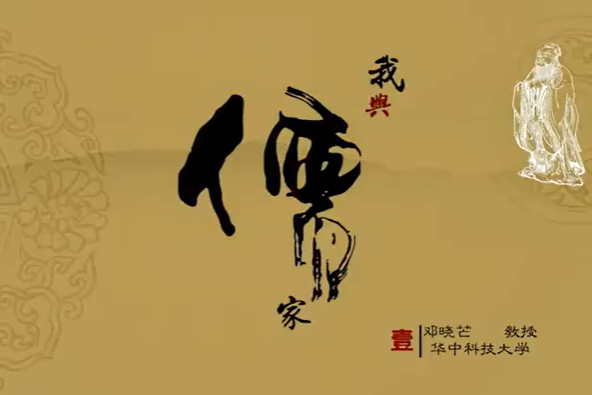 我
與
儒
家
壹
邓晓芒 教授
华中科技大学